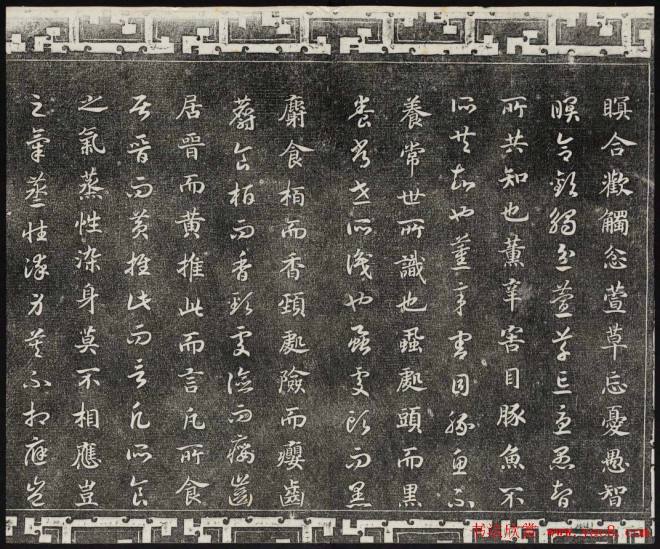 瞑合歡觸忿萱草忘憂愚智
瞑合歡觸忿萱草忘憂愚智
所共知也薰辛害目豚魚不
所共知也薰辛害目豚魚不
養常世所識也蝨處頭而黑
養常世所識也蝨處頭而黑
麝食栢而香頸處險而癭齒
麝食栢而香頸處險而癭齒
居晉而黃推此而言凡所食
居晉而黃推此而言凡所食
之氣蒸性染身莫不相應豈
之氣蒸性染身莫不相應豈
书法欣赏 www.yac8.com